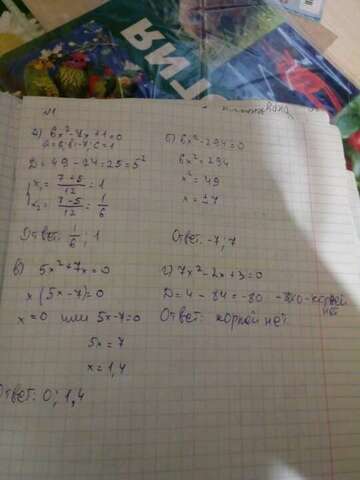 ТИЯ
№1
а) 6x²-7x+1=0
a=6; b=-7; c=1
D = 49 - 24 = 25 = 5²
x₁ = (7+5)/12 = 1
x₂ = (7-5)/12 = 1/6
Ответ: 1/6 ; 1
б) 6x²-294=0
6x²=294
x²=49
x = ±7
Ответ: -7; 7
в) 5x²+7x=0
x(5x-7)=0
x=0 или 5x-7=0
5x=7
x=1,4
Ответ: 0; 1,4
г) 7x²-2x+3=0
D=4-84=-80
нет
Ответ: корней нет